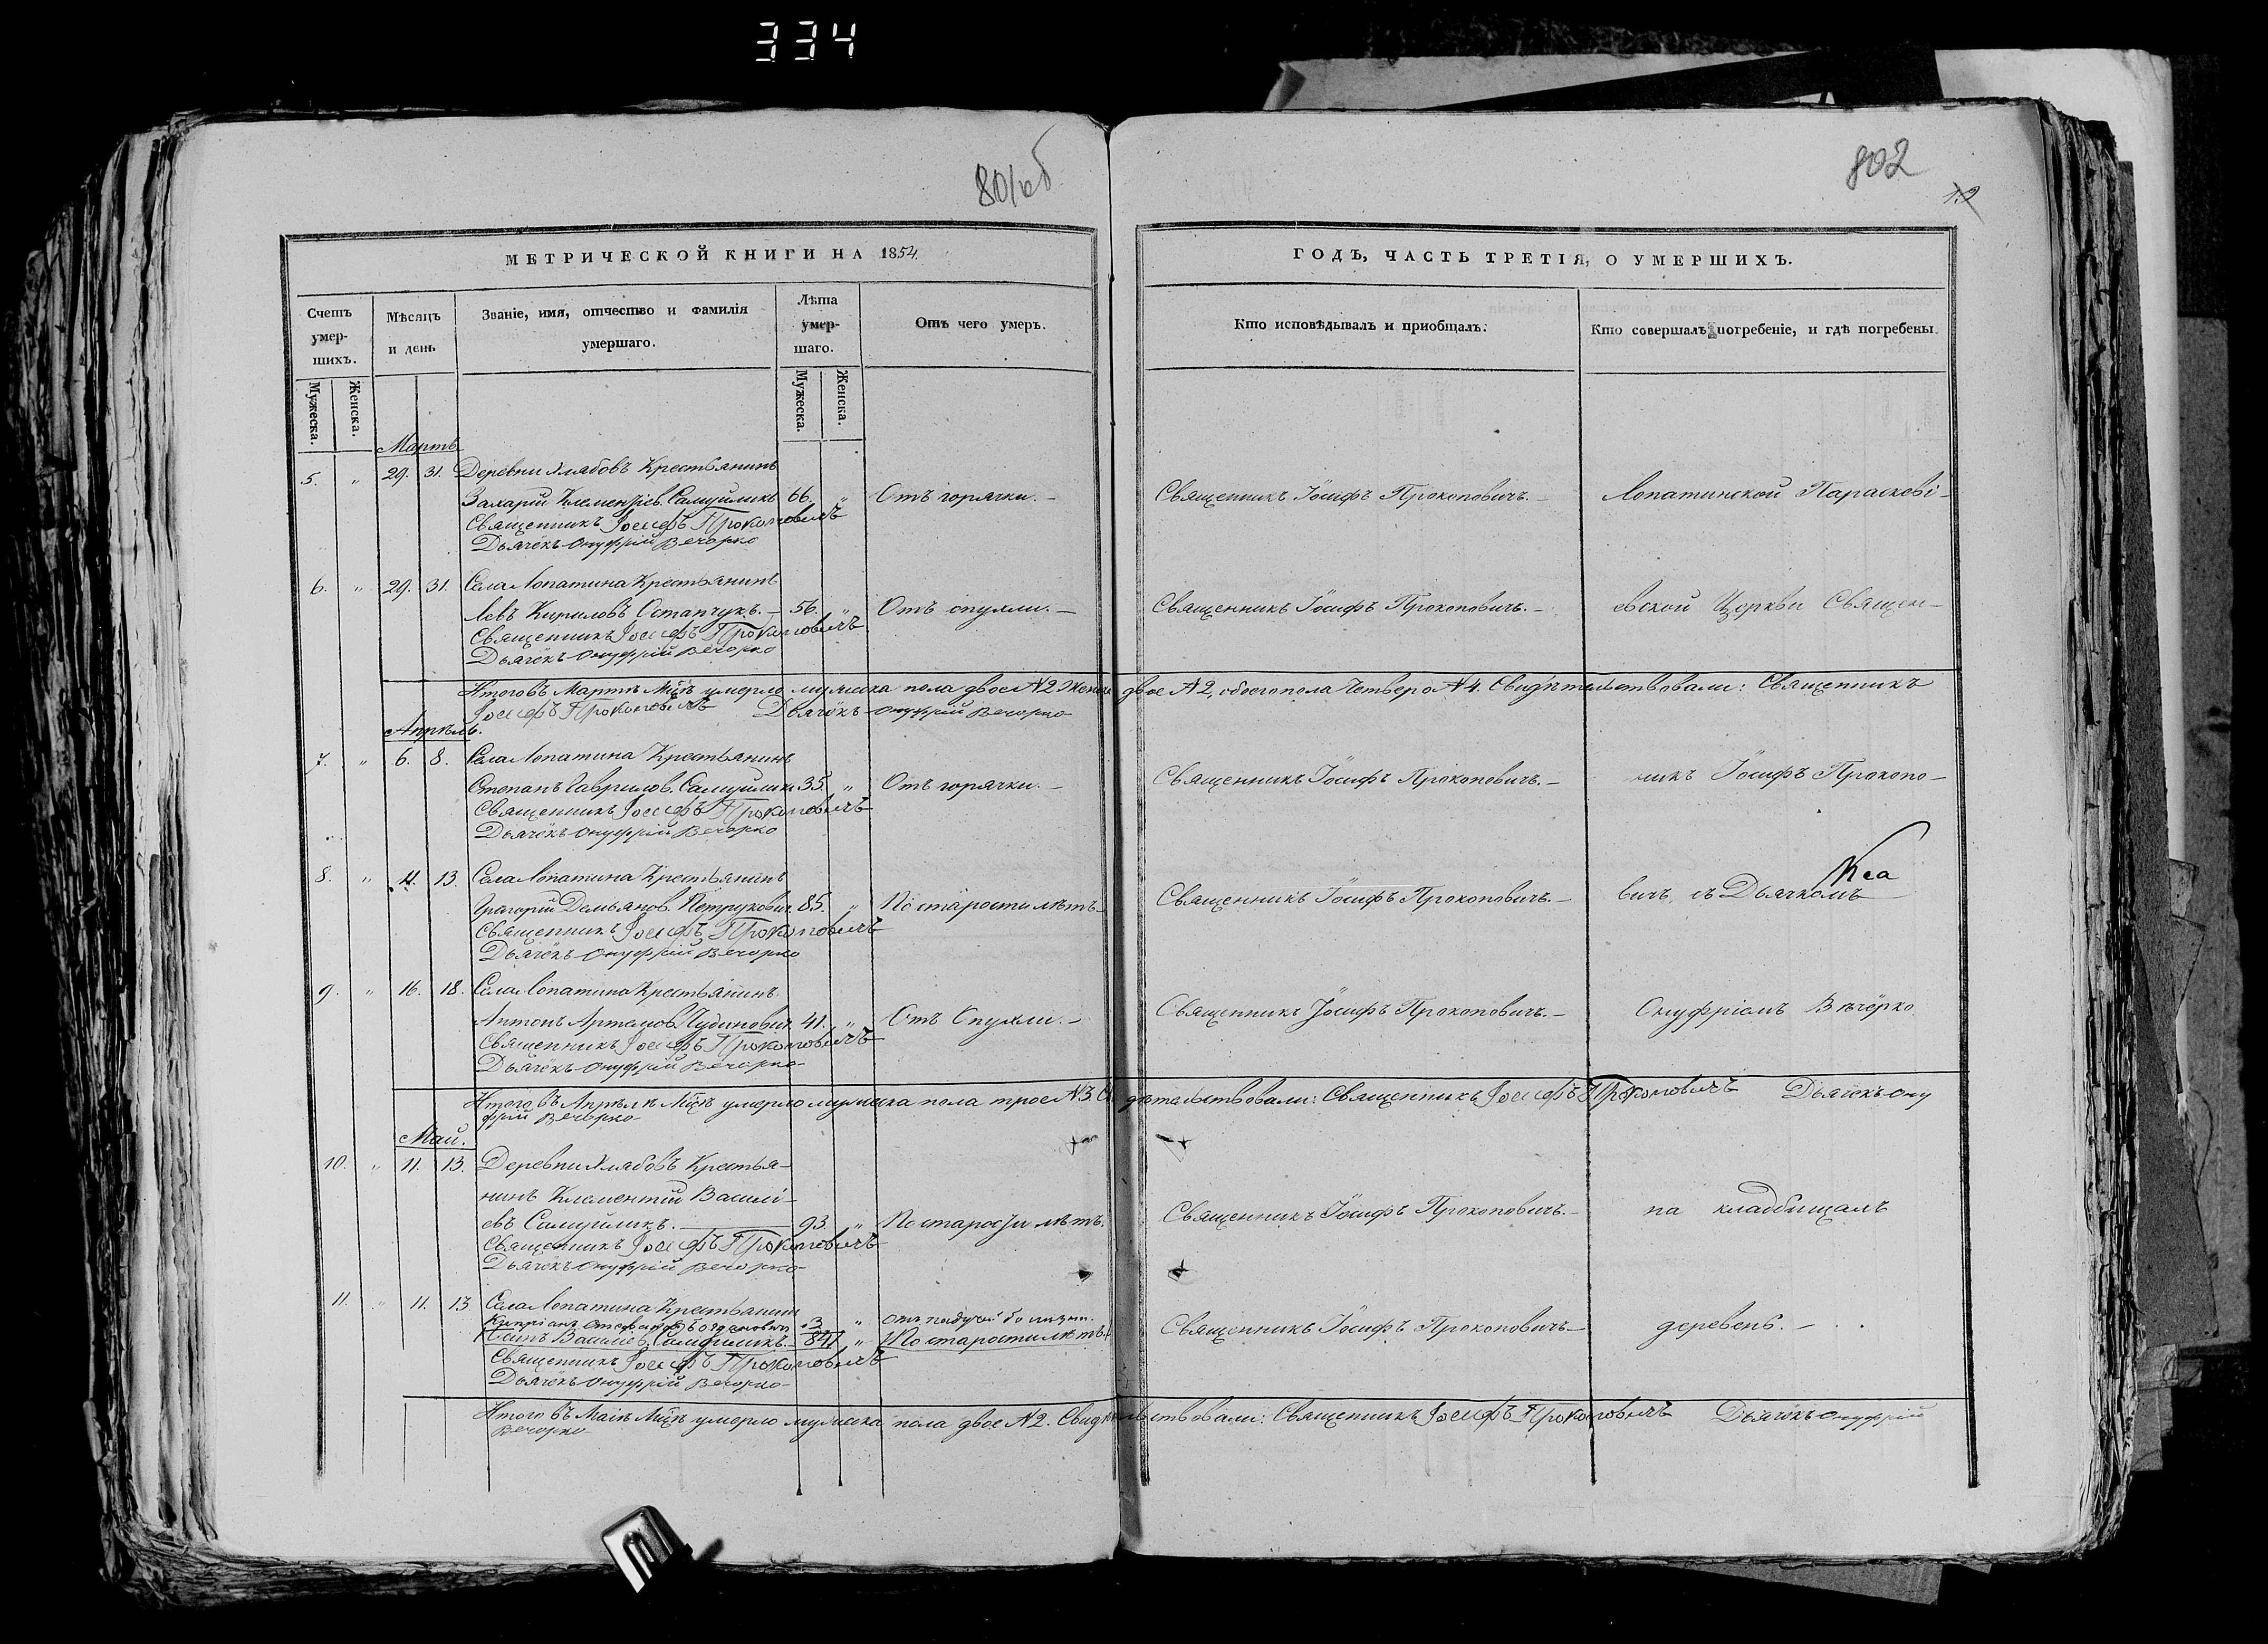 334
801об
802
12
МЕТРИЧЕСКОЙ КНИГИ НА 1854.
ГОДЪ, ЧАСТЬ ТРЕТІЯ, О УМЕРШИХЪ.
Счетъ умер-шихъ.
Мужеска.
Женска.
Мѣсяцъ и день
Званіе, имя, отчество и фамилія умершаго.
Лѣта умер-шаго.
Мужеска.
Женска.
Отъ чего умеръ.
Кто исповѣдывалъ и приобщалъ.
Кто совершалъ погребеніе, и гдѣ погребены.
Мартъ
5. " 29. 31. Деревни Хлябовъ Крестьянинъ
Захарій Клементіев. Самуйликъ 66. " Отъ горячки. — Священникъ Іосифъ Прокоповичъ. — Лопатинской Параскеві-
Священникъ Іосифъ Прокоповичъ
Дьячёкъ Онуфрій Вечорко
6. " 29. 31. Села Лопатина Крестьянинъ
Левъ Кириловъ Остапчукъ. — 56. " Отъ опухли. — Священникъ Іосифъ Прокоповичъ. — евской Церкви Священ-
Священникъ Іосифъ Прокоповичъ
Дьячёкъ Онуфрій Вечорко
Итого въ Мартѣ Мцѣ умерло мужеска пола двое №2 Женска двое №2, обоего пола Четверо №4. Свидѣтельствовали: Священникъ
Іосифъ Прокоповичъ Дьячёкъ Онуфрій Вечорко
Апрѣль.
7. " 6. 8. Села Лопатина Крестьянинъ
Степанъ Гаврилов. Самуйликъ 35. " Отъ горячки. — Священникъ Іосифъ Прокоповичъ. — никъ Іосифъ Прокопо-
Священникъ Іосифъ Прокоповичъ
Дьячёкъ Онуфрій Вечорко
8. " 11. 13. Села Лопатина Крестьянинъ
Григорій Демьянов. Петрукович. 85. " По старости лѣтъ. Священникъ Іосифъ Прокоповичъ. — вичъ, съ Дьячкомъ
Священникъ Іосифъ Прокоповичъ
Дьячёкъ Онуфрій Вечорко
9. " 16. 18. Села Лопатина Крестьянинъ
Антонъ 41. " Отъ Опухли. — Священникъ Іосифъ Прокоповичъ. — Онуфріемъ Вѣчёрко
Священникъ Іосифъ Прокоповичъ
Дьячёкъ Онуфрій Вечорко
Итого въ Апрѣлѣ Мцѣ умерло мужеска пола трое №3. Свидѣтельствовали: Священникъ Іосифъ Прокоповичъ Дьячекъ Ону
фрій Вечорко
Май.
10. " 11. 13. Деревни Хлябовъ Крестья-
нинъ Клементій Василі-
евъ Самуйликъ. — 93 " По старости лѣтъ. Священникъ Іосифъ Прокоповичъ. — на кладбищахъ
Священникъ Іосифъ Прокоповичъ
Дьячёкъ Онуфрій Вечорко
11. " 11. 13 Села Лопатина Крестьянинъ
Кипріанъ Стефановъ 3 " отъ падучей болѣзни.
Василіев. Самуйликъ. — 84 " По старости лѣтъ. Священникъ Іосифъ Прокоповичъ — деревень. —
Священникъ Іосифъ Прокоповичъ
Дьячёкъ Онуфрій Вечорко
Итого въ Маіѣ Мцѣ умерло мужеска пола двое №2. Свидѣтельствовали: Священникъ Іосифъ Прокоповичъ Дьячёкъ Онуфрій
Вечорко